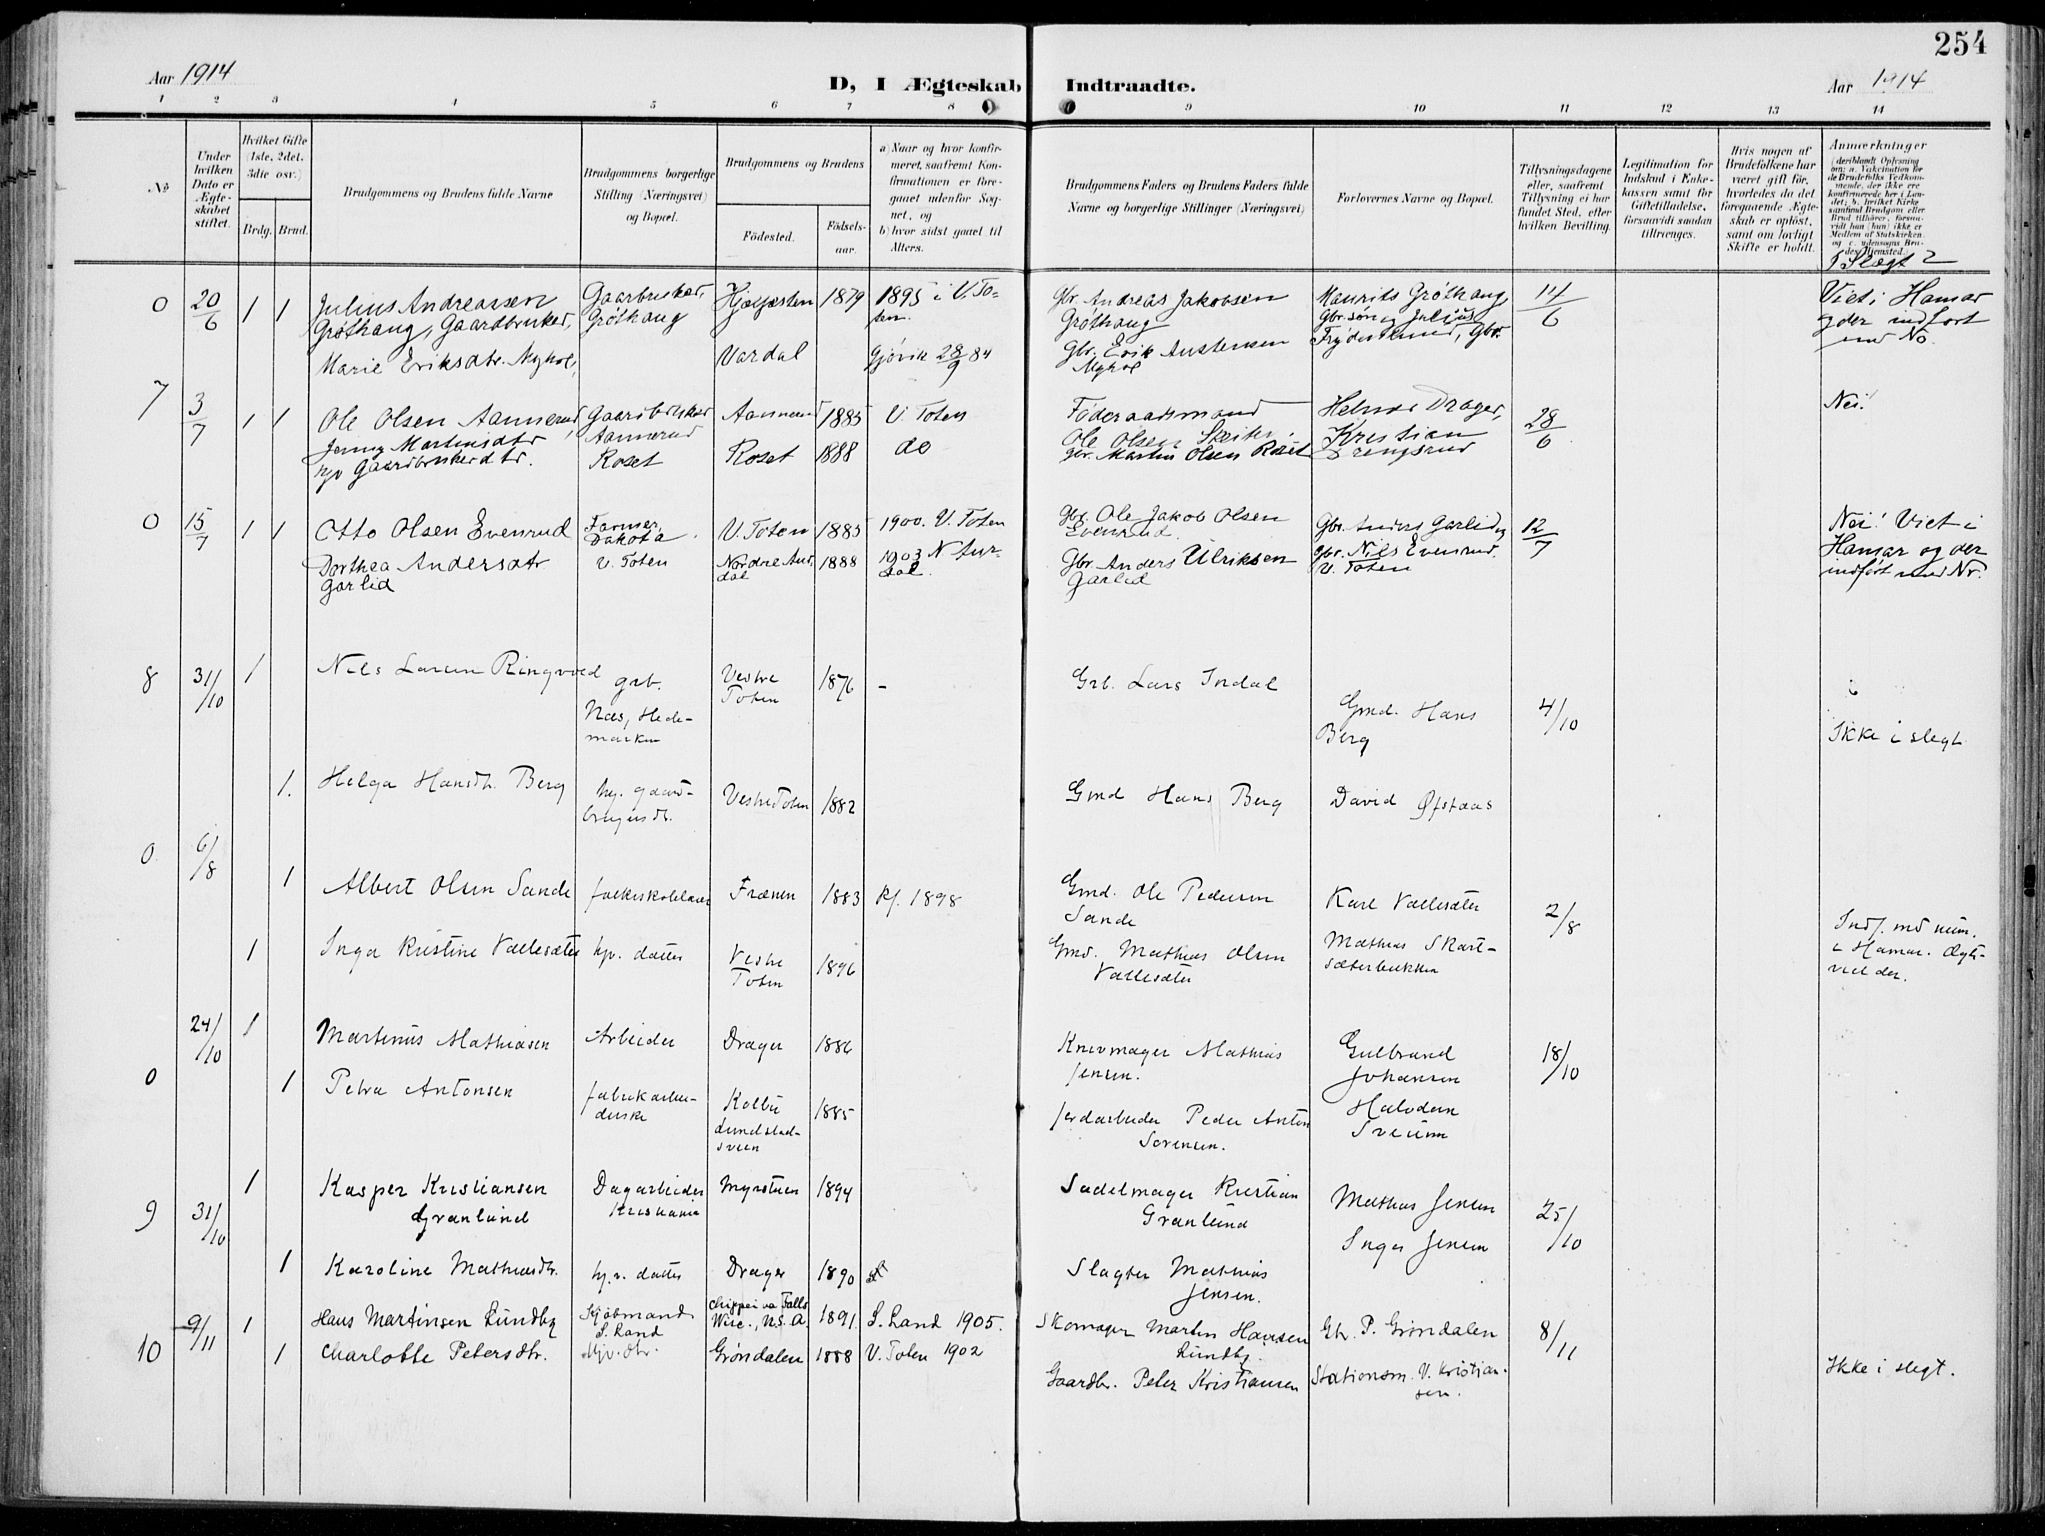 254
Aar 1914
D, I Ægteskab Indtraadte.
Aar 1914
1 2 3 4 5 6 7 8 9 10 11 12 13 14
No
Under hvilken Dato er Ægteskabet stiftet.
Hvilket Gifte (1ste, 2det, 3die osv.)
Brdg. Brud.
Brudgommens og Brudens fulde Navne
Brudgommens borgerlige Stilling (Næringsvei) og Bopæl.
Brudgommens og Brudens
Fødested.
Fødselsaar.
a) Naar og hvor konfirmeret, saafremt Konfirmationen er foregaaet udenfor Sognet, og
b) hvor sidst gaaet til Alters.
Brudgommens Faders og Brudens Faders fulde Navne og borgerlige Stillinger (Næringsvei)
Forlovernes Navne og Bopæl.
Tillysningsdagene eller, saafremt Tillysning ei har fundet Sted, efter hvilken Bevilling.
Legitimation for Indskud i Enkekassen samt for Giftetilladelse, forsaavidt saadan tiltrænges.
Hvis nogen af Brudefolkene har været gift før, hvorledes da det foregaaende Ægteskab er opløst, samt om lovligt Skifte er holdt.
Anmærkninger
I Slægt?
0 20/6 1 1 Julius Andreassen
Grøthaug, Gaardbruker,
Gaarbruker, Grøthaug
1879 1895 i V. Toten
Gbr. Andreas Jakobsen Grøthaug
Maurits Grøthaug, Gbr.søn og Julius
14/6
Viet i Hamar og der indført med No.
Marie Eriksdtr. Myhol,
Vardal
Gjøvik 28/9 84
Gbr. Erik Austensen Myhol
7 3/7 1 1 Ole Olsen Aannerud,
Gaardbruker Aannerud
Aannerud 1885 V. Toten
Føderaadsmand Ole Olsen
Helmer Drager,
28/6
Nei!
Jenny Martinsdtr
hjv Gaardbrukerdtr.
Roset Roset 1888 do
gbr. Martin Olsen Roset
Kristian
0 15/7 1 1 Otto Olsen Evenrud
Farmer, Dakota.
V. Toten 1885 1900. V. Toten
Gbr. Ole Jakob Olsen Evenrud.
Gbr. Anders Garlid og
gbr. Nils Evenrud.
V. Toten
12/7
Nei! Viet i Hamar og der indført med Nr.
Dorthea Andersdtr Garlid
V. Toten
Nordre Aurdal 1888 1903 N. Aurdal.
Gbr Anders Ulriksen Garlid
8 31/10 1 Nils Larsen Ringvold
grb. Næs, Hedemarken
Vestre Toten 1876 -
Grb. Lars Indal
Gmd. Hans Berg
4/10
Ikke i slegt
1. Helga Hansdt. Berg
hj. gaardbrugerdt.
Vestre Toten 1882
Gmd Hans Berg
David Øfstaas
0 6/8 1 Albert Olsen Sande
folkeskolelærer
Frænen 1883 Kf. 1898
Gmd. Ole Pedersen Sande
Karl Vallesæter
2/8
Indf. md num. i Hamar. Ægtviel der.
1 Inga Kristine Vallesæter
hjv. datter
Vestre Toten 1896
Gmd. Mathias Olsen Vallesæter
Mathias Skartsæterbakken
0 24/10 1 Martinus Mathiasen
Arbeider Drager 1886
Knivmager Mathias Jensen.
Gulbrand Johansen
18/10
1 Petra Antonsen
fabrikarbeiderske
Kolbu Lundstadsveen 1885
Jerdarbeider Peder Anton Sørensen.
Halvdan Sveum
9 31/10 1 Kasper Kristiansen Granlund
Dagarbeider Kristiania
Myrstuen 1894
Sadelmager Kristian Granlund
Mathias Jensen
25/10
1 Karoline Mathiasdt.
hj.v. datter Drager 1890
Slagter Mathias Jensen.
Inger Jensen
10 9/11 1 Hans Martinsen Lundby
Kjøbmand S. Land
Chippeiva Falls Wisc., U.S.A. 1891. S. Land 1905.
Skomager Martin Hansen Lundby.
Gbr. P. Grøndalen
8/11
Ikke i slegt.
1 Charlotte Petersdtr.
Hjv. dtr. Grøndalen 1888 V. Toten 1902
Gaardbr. Peter Kristiansen
Stationsm. V. Kristiansen.